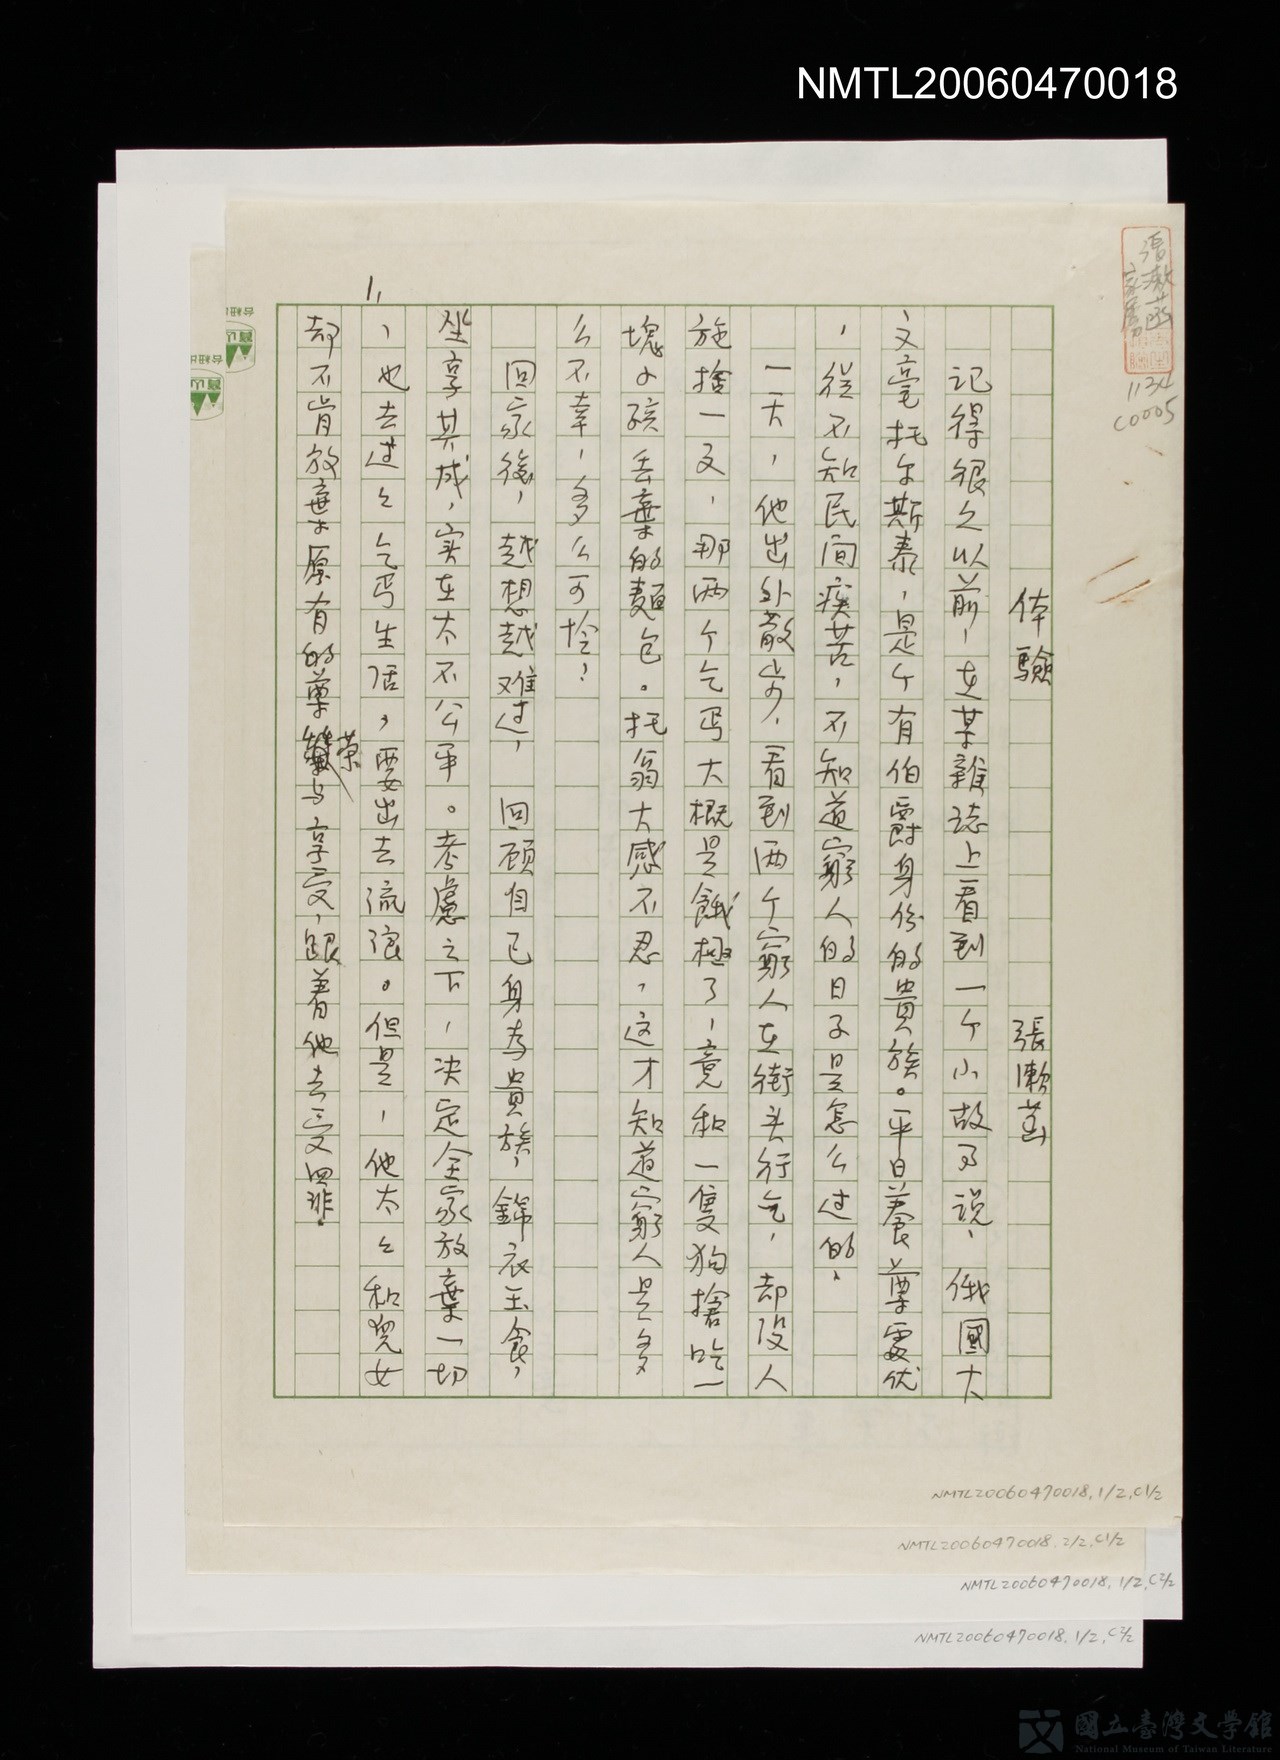 NMTL20060470018
1134
C0005
1,
体驗　張漱菡
記得很久以前，在某雜誌上看到一个小故事說，俄國大
文豪托尔斯泰，是个有伯爵身份的貴族。平日養尊處优
，從不知民间疾苦，不知道窮人的日子是怎么过的。
一天，他出外散步，看到两个窮人在街头行乞，却没人
施捨一文，那两个乞丐大概是餓極了，竟和一隻狗搶吃一
塊小孩丢棄的麵包。托翁大感不忍，这才知道窮人是多
么不幸，多么可怜！
回家後，越想越难过，回顾自已身为貴族，錦衣玉食，
坐享其成，实在太不公平。考慮之下，决定全家放棄一切
，也去过々乞丐生活，要出去流浪。但是，他太々和兒女
却不肯放棄原有的尊榮与享受，跟着他去受罪。
NMTL20060470018, 1/2, C1/2
NMTL20060470018, 2/2, C1/2
NMTL20060470018, 1/2, C2/2
NMTL20060470018, 1/2, C2/2
國立臺灣文學館
National Museum of Taiwan Literature